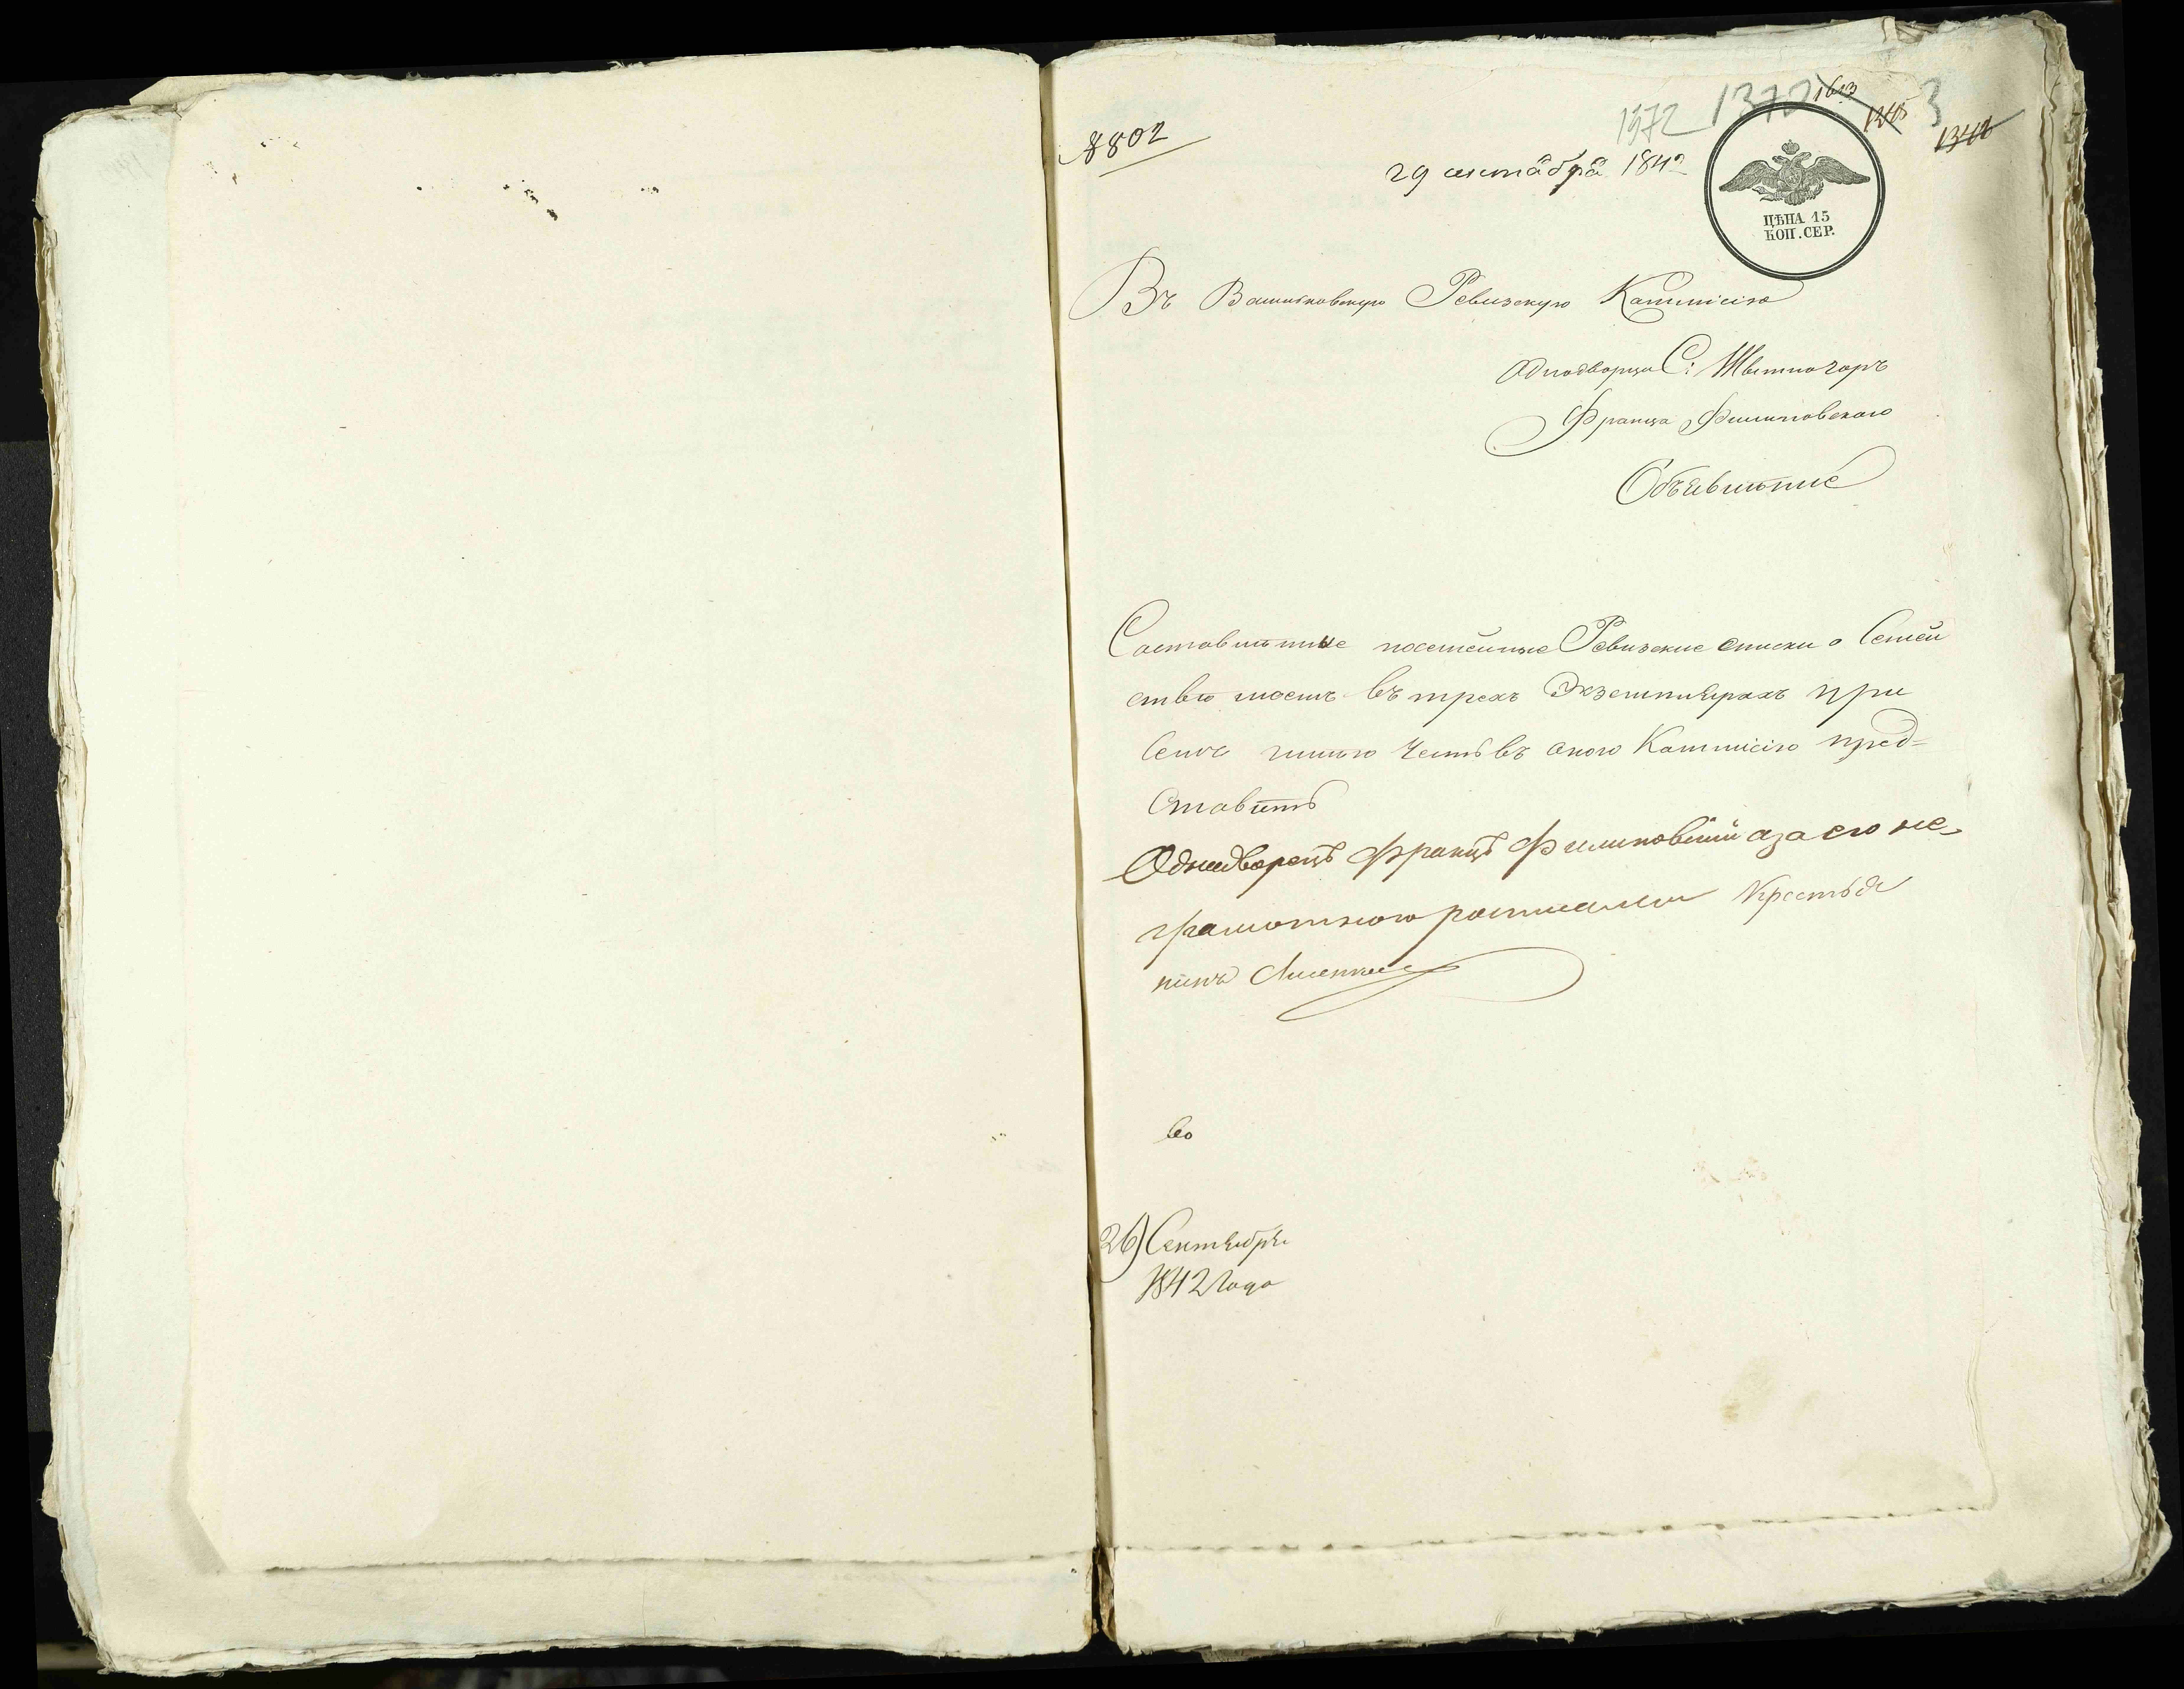 8802
1572 1372 1613 1345 3 1342
29 октября 1842
ЦѢНА 15
КОП. СЕР.
Въ Васильковскую Ревизскую Коммисію
Однодворца С:
Франца Филиповскаго
Объявленіе
Составленные посемейные Ревизские списки о Семей
стве моемъ въ трехъ Экземплярахъ при
семъ имѣю честь въ оною Коммисію пред=
ставить
Однодворецъ Францъ Филиповский а за его не
грамотного росписался Крестья
нинъ
во
26) Сентября
1842 года